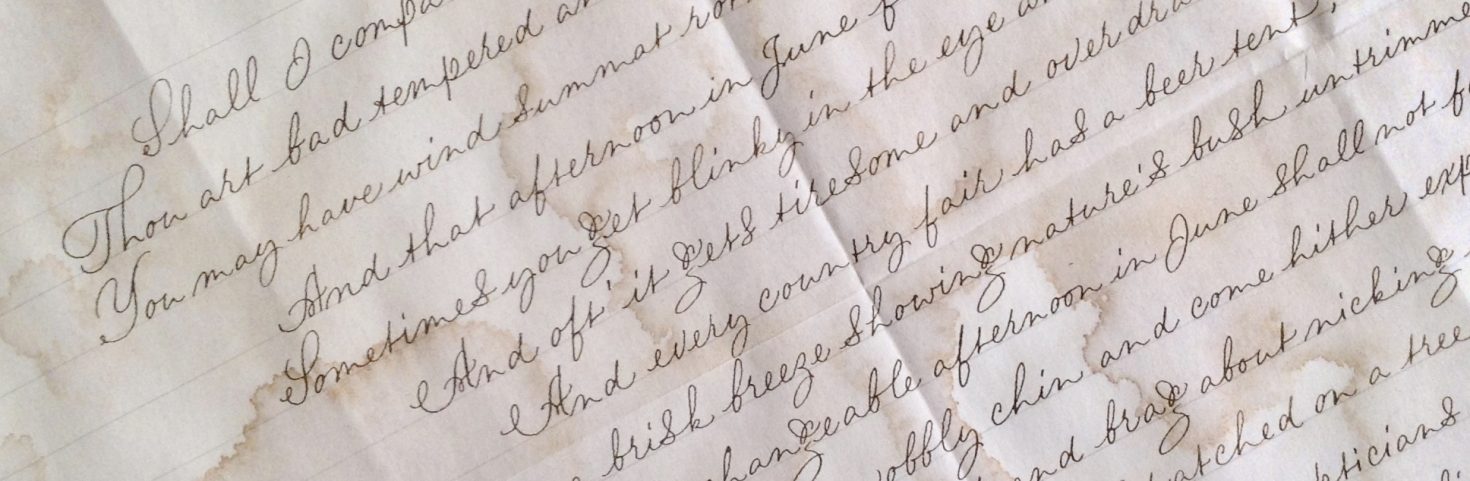 Shall I
Thou art bad tempered
You may have wind summat
And that afternoon in June
Sometimes you get blinky in the eye
And oft' it gets tiresome and
And every country fair has a beer tent,
brisk breeze showing nature's bush
afternoon in June shall not
chin and come hither
brag about nicking
on a tree